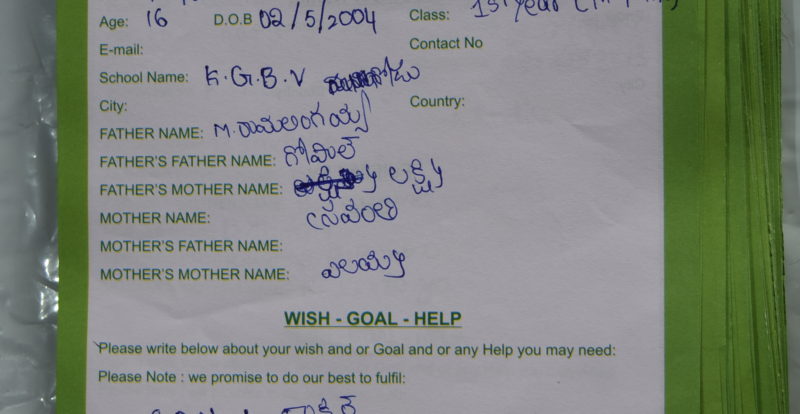 Age: 16 D.O.B 02/5/2004 Class: 1st year
E-mail: Contact No
School Name: K.G.B.V
City: Country:
FATHER NAME: M. రామలింగయ్య
FATHER'S FATHER NAME:
FATHER'S MOTHER NAME: లక్ష్మి
MOTHER NAME: స్రవంతి
MOTHER'S FATHER NAME:
MOTHER'S MOTHER NAME:
WISH - GOAL - HELP
Please write below about your wish and or Goal and or any Help you may need:
Please Note : we promise to do our best to fulfil: